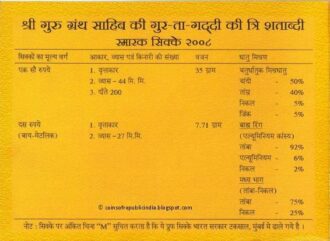 श्री गुरु ग्रंथ साहिब की गुर-ता-गद्दी की त्रि शताब्दी
स्मारक सिक्के २००८
सिक्को का मूल्य वर्ग आकार, व्यास एवं किनारी की संख्या वजन धातु मिश्रण
एक सौ रुपये 1. वृत्ताकार 35 ग्राम चतुर्धातुक मिश्रधातु
2. व्यास-44 मि. मि. चांदी - 50%
3. दांते 200 ताम्र - 40%
निकल - 5%
जिंक - 5%
दस रुपये 1. वृत्ताकार 7.71 ग्राम बाह्य रिंग
(बाय-मेटलिक) 2. व्यास-27 मि.मि. (एल्युमिनियम कांस्य)
तांबा - 92%
एल्युमिनियम - 6%
निकल - 2%
मध्य भाग
(तांबा-निकल)
तांबा - 75%
निकल - 25%
© coinsofrepublicindia.blogspot.com
नोट : सिक्के पर अंकित चिन्ह "M" सूचित करता है कि ये प्रूफ सिक्के भारत सरकार टकसाल, मुंबई में ढाले गये है ।